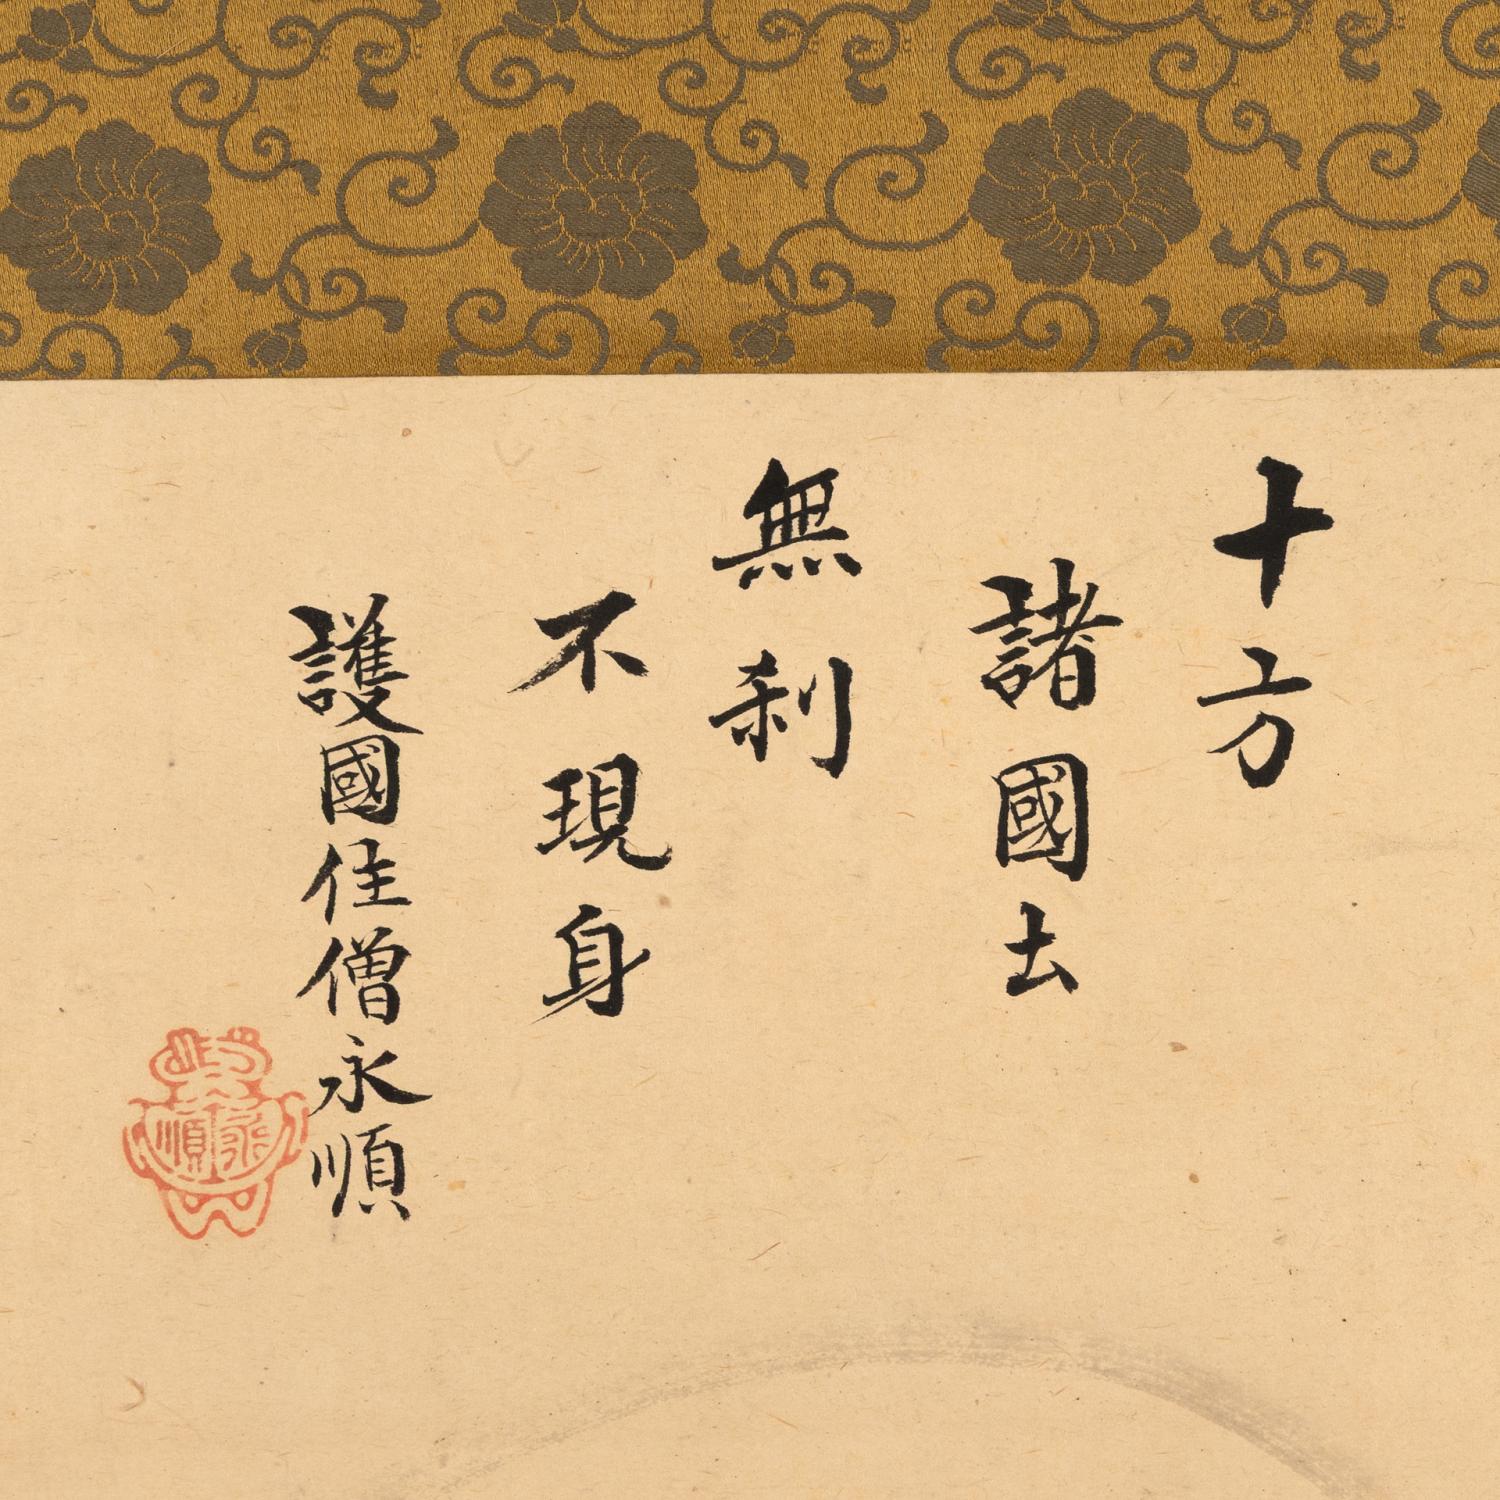 十方
諸國土
無刹
不現身
護國住僧永順
永順